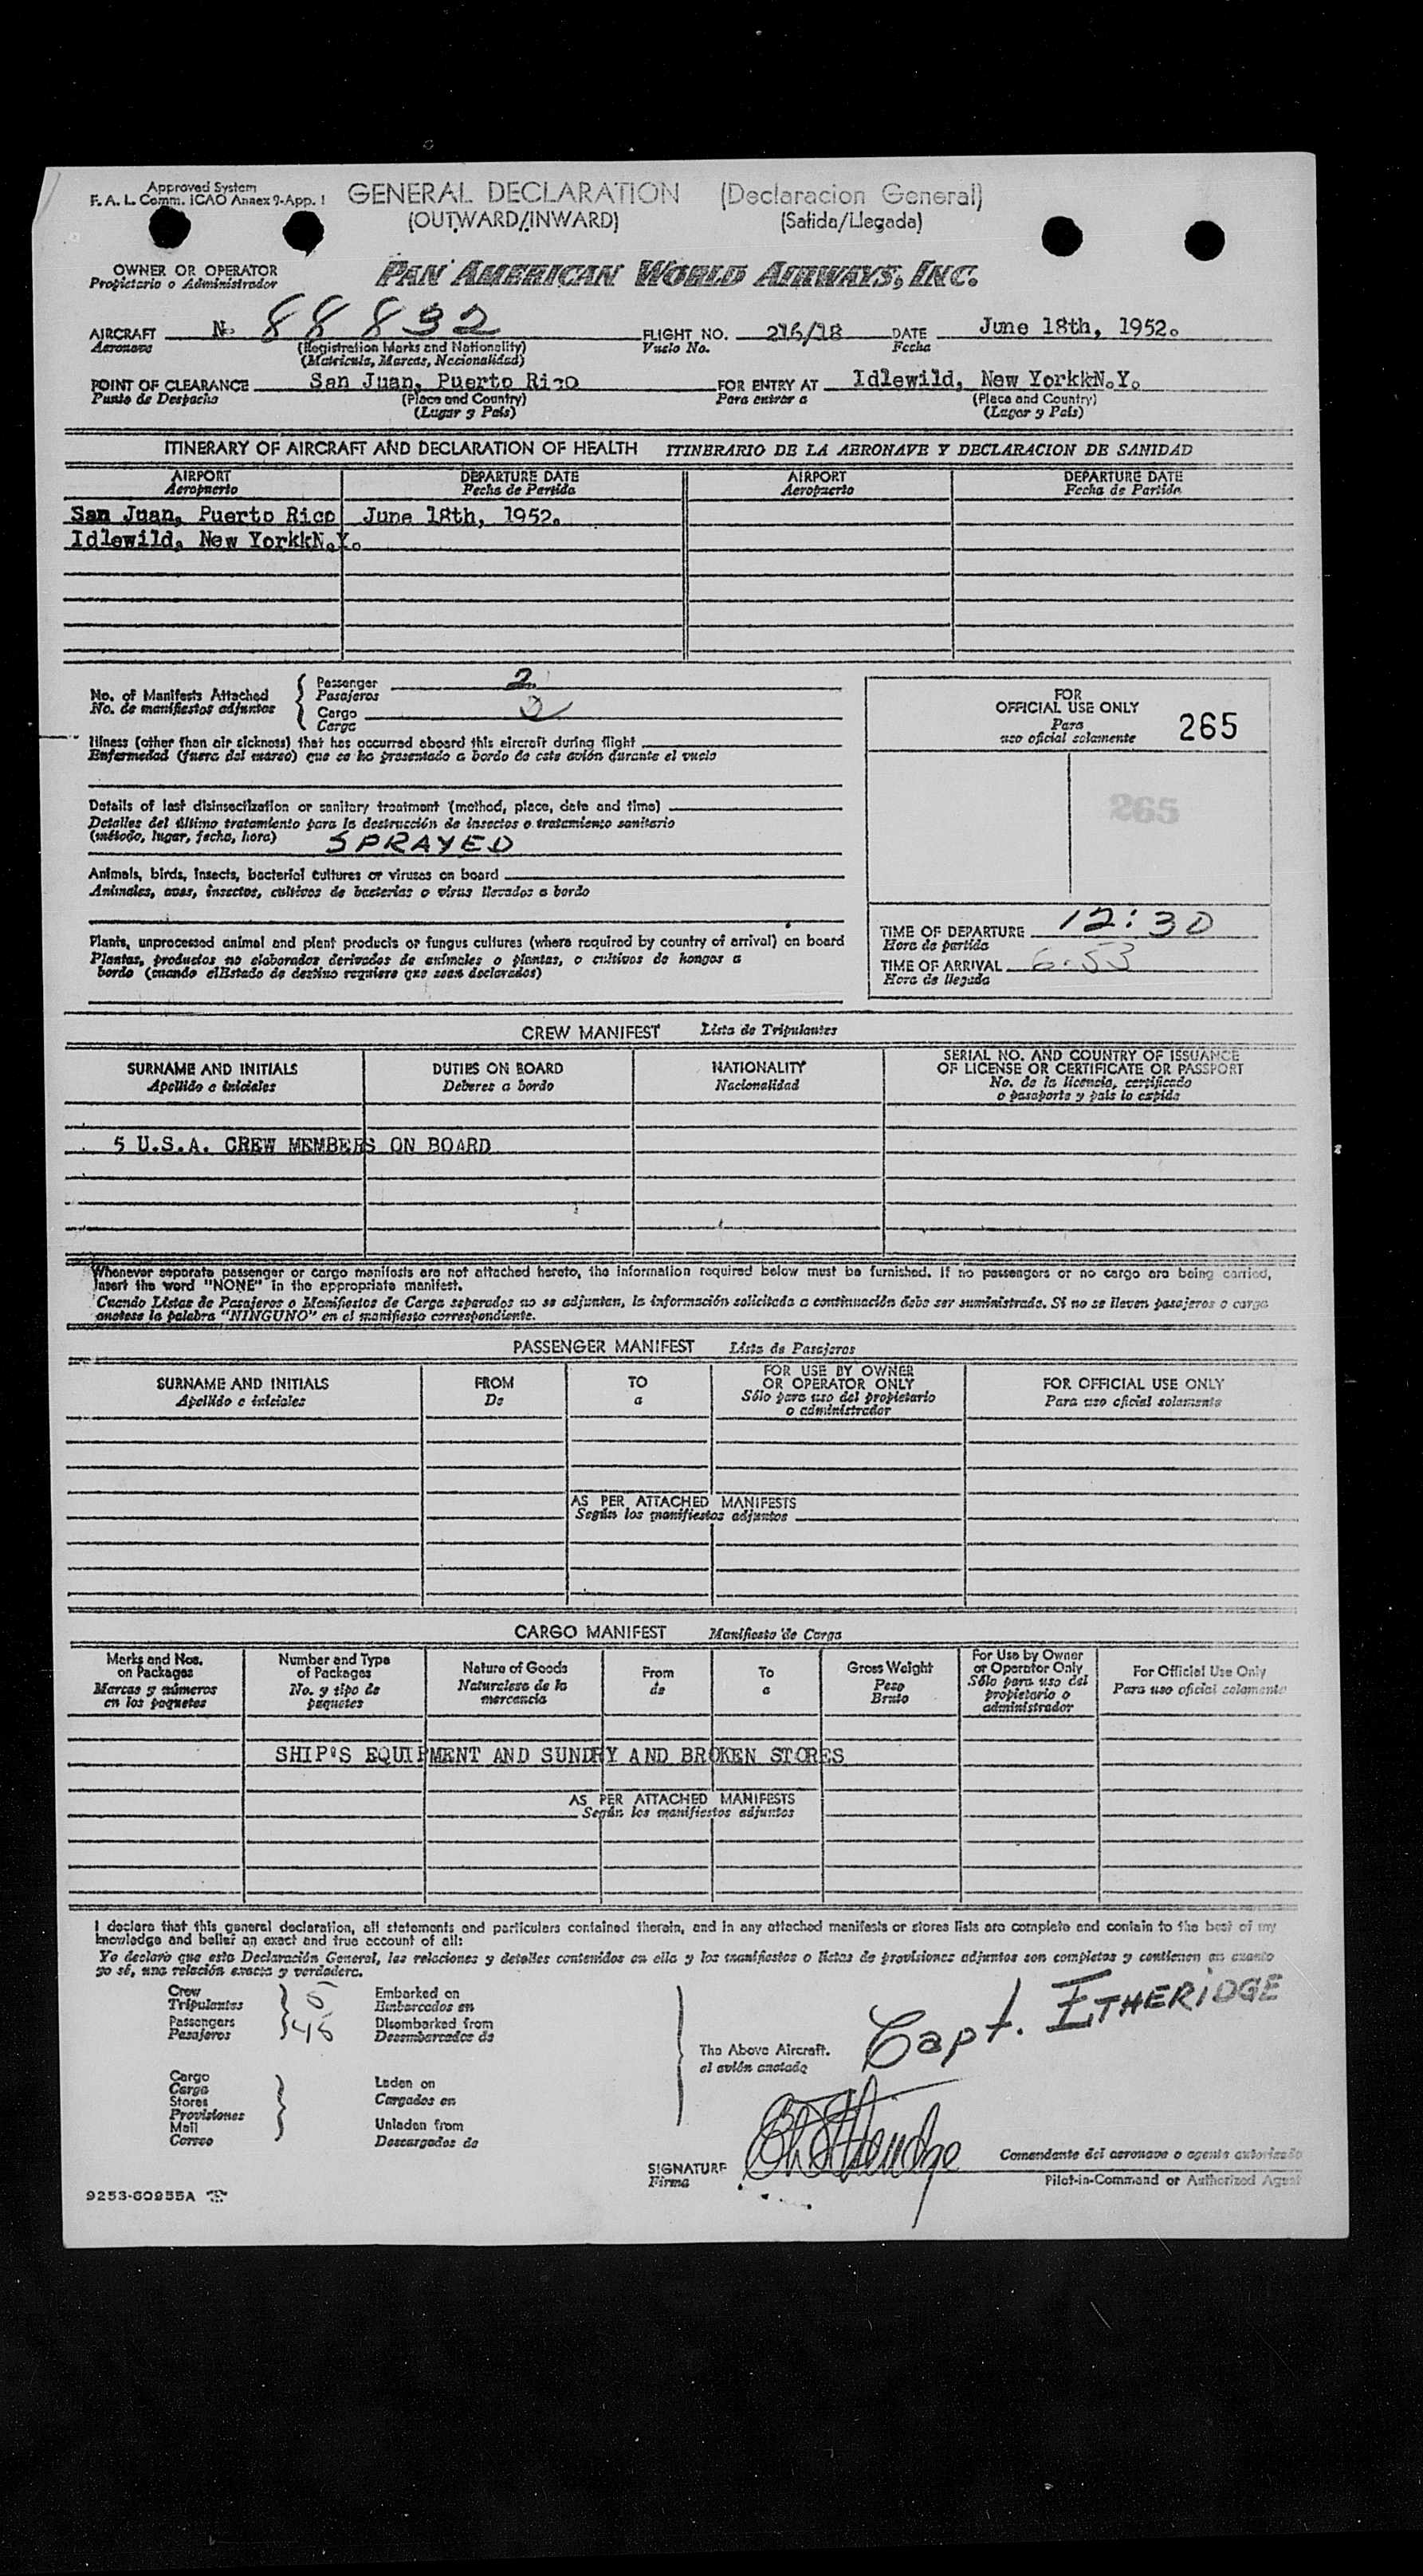 Approved System
F. A. L. Comm. ICAO Annex 9-App. 1
GENERAL DECLARATION (Declaracion General)
(OUTWARD/INWARD) (Salida/Llegada)
OWNER OR OPERATOR
Propietario o Administrador
PAN AMERICAN WORLD AIRWAYS, INC.
AIRCRAFT N- 88832 FLIGHT NO. 216/18 DATE June 18th, 1952.
Aeronave (Registration Marks and Nationality) Vuelo No. Fecha
(Matricula, Marcas, Nacionalidad)
POINT OF CLEARANCE San Juan, Puerto Rico FOR ENTRY AT Idlewild, New YorkkN.Y.
Punto de Despacho (Place and Country) Para entrar a (Place and Country)
(Lugar y País) (Lugar y País)
ITINERARY OF AIRCRAFT AND DECLARATION OF HEALTH ITINERARIO DE LA AERONAVE Y DECLARACION DE SANIDAD
AIRPORT DEPARTURE DATE AIRPORT DEPARTURE DATE
Aeropuerto Fecha de Partida Aeropuerto Fecha de Partida
San Juan, Puerto Rico June 18th, 1952.
Idlewild, New YorkkN.Y.
No. of Manifests Attached
No. de manifiestos adjuntos
Passenger 2
Pasajeros
Cargo 2
Carga
FOR
OFFICIAL USE ONLY
Para
uso oficial solamente
265
265
Illness (other than air sickness) that has occurred aboard this aircraft during flight
Enfermedad (fuera del mareo) que se ha presentado a bordo de este avión durante el vuelo
Details of last disinsectization or sanitary treatment (method, place, date and time)
Detalles del último tratamiento para la destrucción de insectos o tratamiento sanitario
(método, lugar, fecha, hora) SPRAYED
Animals, birds, insects, bacterial cultures or viruses on board
Animales, aves, insectos, cultivos de bacterias o virus llevados a bordo
Plants, unprocessed animal and plant products or fungus cultures (where required by country of arrival) on board
Plantas, productos no elaborados derivados de animales o plantas, o cultivos de hongos a
bordo (cuando elEstado de destino requiere que sean declarados)
TIME OF DEPARTURE 12:30
Hora de partida
TIME OF ARRIVAL 6:53
Hora de llegada
CREW MANIFEST Lista de Tripulantes
SURNAME AND INITIALS DUTIES ON BOARD NATIONALITY SERIAL NO. AND COUNTRY OF ISSUANCE
OF LICENSE OR CERTIFICATE OR PASSPORT
Apellido e iniciales Deberes a bordo Nacionalidad No. de la licencia, certificado
o pasaporte y país lo expide
5 U.S.A. CREW MEMBERS ON BOARD
Whenever separate passenger or cargo manifests are not attached hereto, the information required below must be furnished. If no passengers or no cargo are being carried,
insert the word "NONE" in the appropriate manifest.
Cuando Listas de Pasajeros o Manifiestos de Carga separados no se adjuntan, la información solicitada a continuación debe ser suministrada. Si no se lleven pasajeros o carga
anotese la palabra "NINGUNO" en el manifiesto correspondiente.
PASSENGER MANIFEST Lista de Pasajeros
SURNAME AND INITIALS FROM TO FOR USE BY OWNER
OR OPERATOR ONLY FOR OFFICIAL USE ONLY
Apellido e iniciales De a Sólo para uso del propietario
o administrador Para uso oficial solamente
AS PER ATTACHED MANIFESTS
Según los manifiestos adjuntos
CARGO MANIFEST Manifiesto de Carga
Marks and Nos.
on Packages
Marcas y números
en los paquetes
Number and Type
of Packages
No. y tipo de
paquetes
Nature of Goods
Naturaleza de la
mercancia
From
de
To
a
Gross Weight
Peso
Bruto
For Use by Owner
or Operator Only
Sólo para uso del
propietario o
administrador
For Official Use Only
Para uso oficial solamente
SHIP'S EQUIPMENT AND SUNDRY AND BROKEN STORES
AS PER ATTACHED MANIFESTS
Según los manifiestos adjuntos
I declare that this general declaration, all statements and particulars contained therein, and in any attached manifests or stores lists are complete and contain to the best of my
knowledge and belief an exact and true account of all:
Yo declaro que esta Declaración General, las relaciones y detalles contenidos en ella y los manifiestos o listas de provisiones adjuntos son completos y contienen en cuanto
yo sé, una relación exacta y verdadera.
Crew 5 Embarked on
Tripulantes Embarcados en
Passengers 45 Disembarked from
Pasajeros Desembarcados de
The Above Aircraft.
el avión anotado
Capt. ETHERIDGE
Cargo
Carga
Stores
Provisiones
Mail
Correo
Laden on
Cargados en
Unladen from
Descargados de
SIGNATURE
Firma
Comandante del aeronave o agente autorizado
Pilot-in-Command or Authorized Agent
9253-60955A